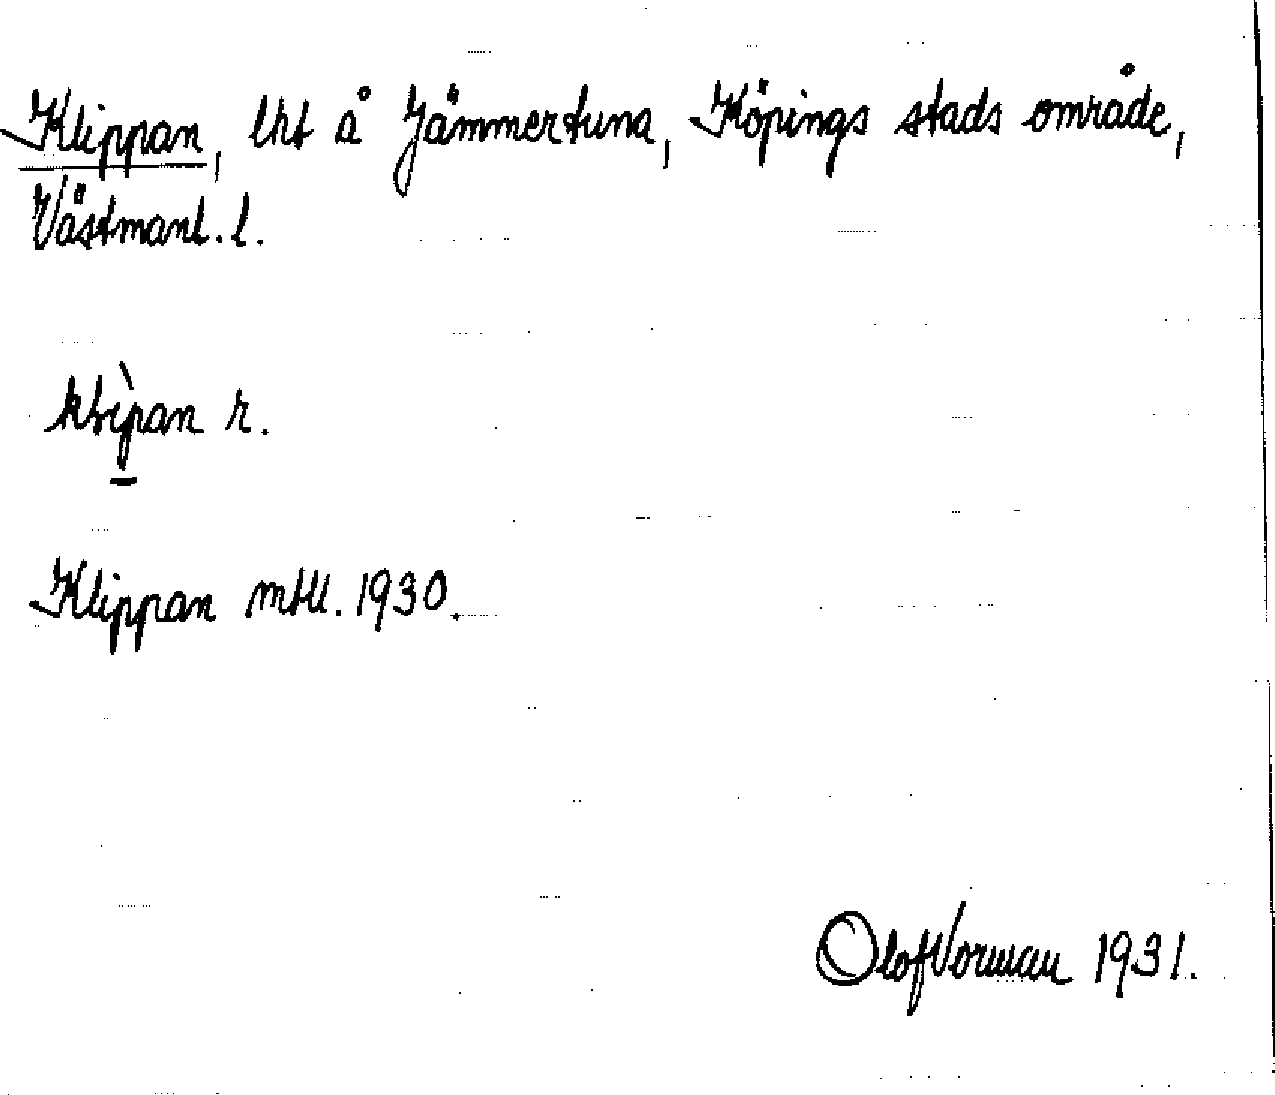 Klippan, lht å Jämmertuna, Köpings stads område,
Västmanl. l.
klìpan r.
Klippan mtll. 1930.
Olof Norman 1931.